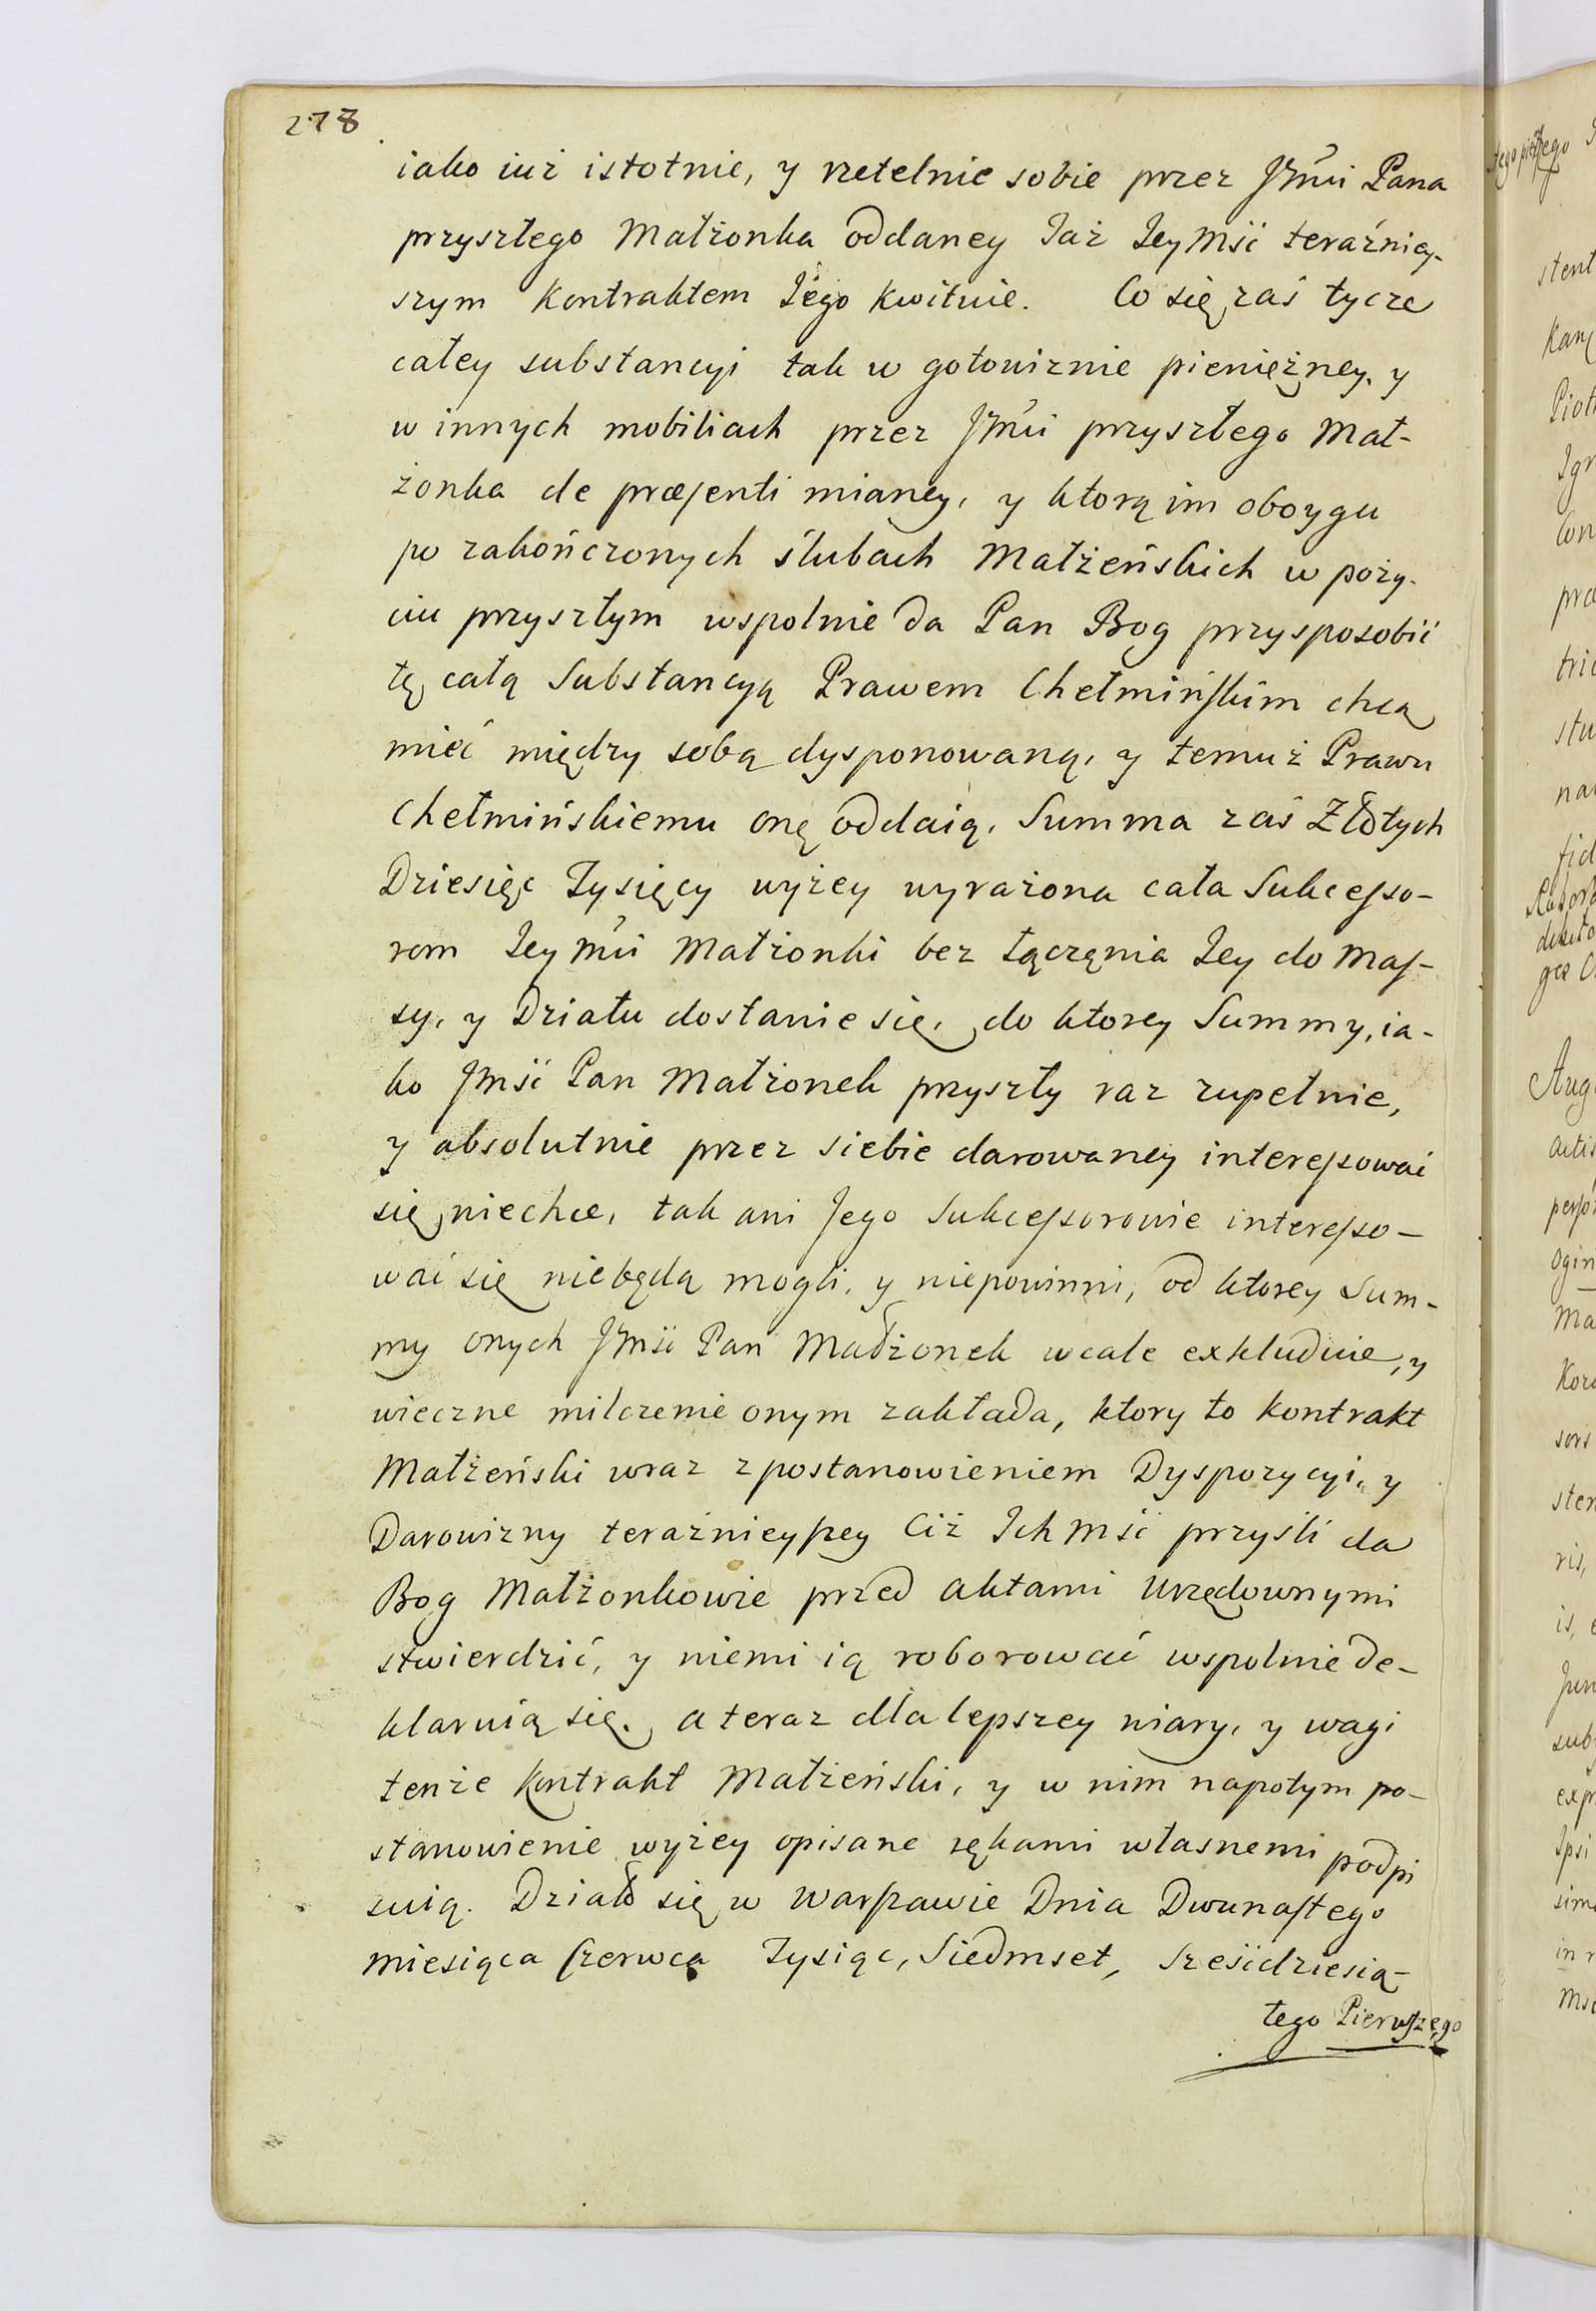 278
iako iuż istotnie, y rzetelnie sobie przez Jmći Pana
przyszłego Małżonka oddaney Taż Jey Mść teraźniey-
szym kontraktem Jego kwituie. Co się zaś tycze
całey substancyi tak w gotowiznie pieniężney, y
w innych mobiliach przez Jmći przyszłego Mał-
żonka de præsenti mianey, y ktorą im oboygu
po zakończonych ślubach Małżeńskich w poży-
ciu przyszłym wspolnie da Pan Bog przysposobić
tę całą Substancyą Prawem Chełmińskim chcą
mieć między sobą dysponowaną, y temuż Prawu
Chełmińskiemu onę oddaią, Summa zaś Złotych
Dziesięć Tysięcy wyżey wyrażona cała Sukcesso-
rom Jey Mći Małżonki bez łączęnia Jey do Mas-
sy, y Działu dostanie się, do ktorey Summy, ia-
ko Jmść Pan Małżonek przyszły raz zupełnie,
y absolutnie przez siebie darowaney interessować
się niechce, tak ani Jego Sukcessorowie interesso-
wać się niebędą mogli, y niepowinni, od ktorey Sum-
my onych Jmść Pan Małżonek wcale exkluduie, y
wieczne milczenie onym zakłada, ktory to kontrakt
Małżeński wraz z postanowieniem Dyspozycyi, y
Darowizny teraźnieyszey Ciż Ich Mść przyśli da
Bog Małżonkowie przed Aktami Urzędownymi
stwierdzić, y niemi ią roborować wspolnie de-
klaruią się. a teraz dla lepszey wiary, y wagi
tenże kontrakt Małżeński, y w nim napotym po-
stanowienie wyżey opisane rękami własnemi podpi
suią. Działo się w Warszawie Dnia Dwunastego
miesiąca Czerwca Tysiąc, Siedmset, Sześćdziesią-
tego Pierwszego